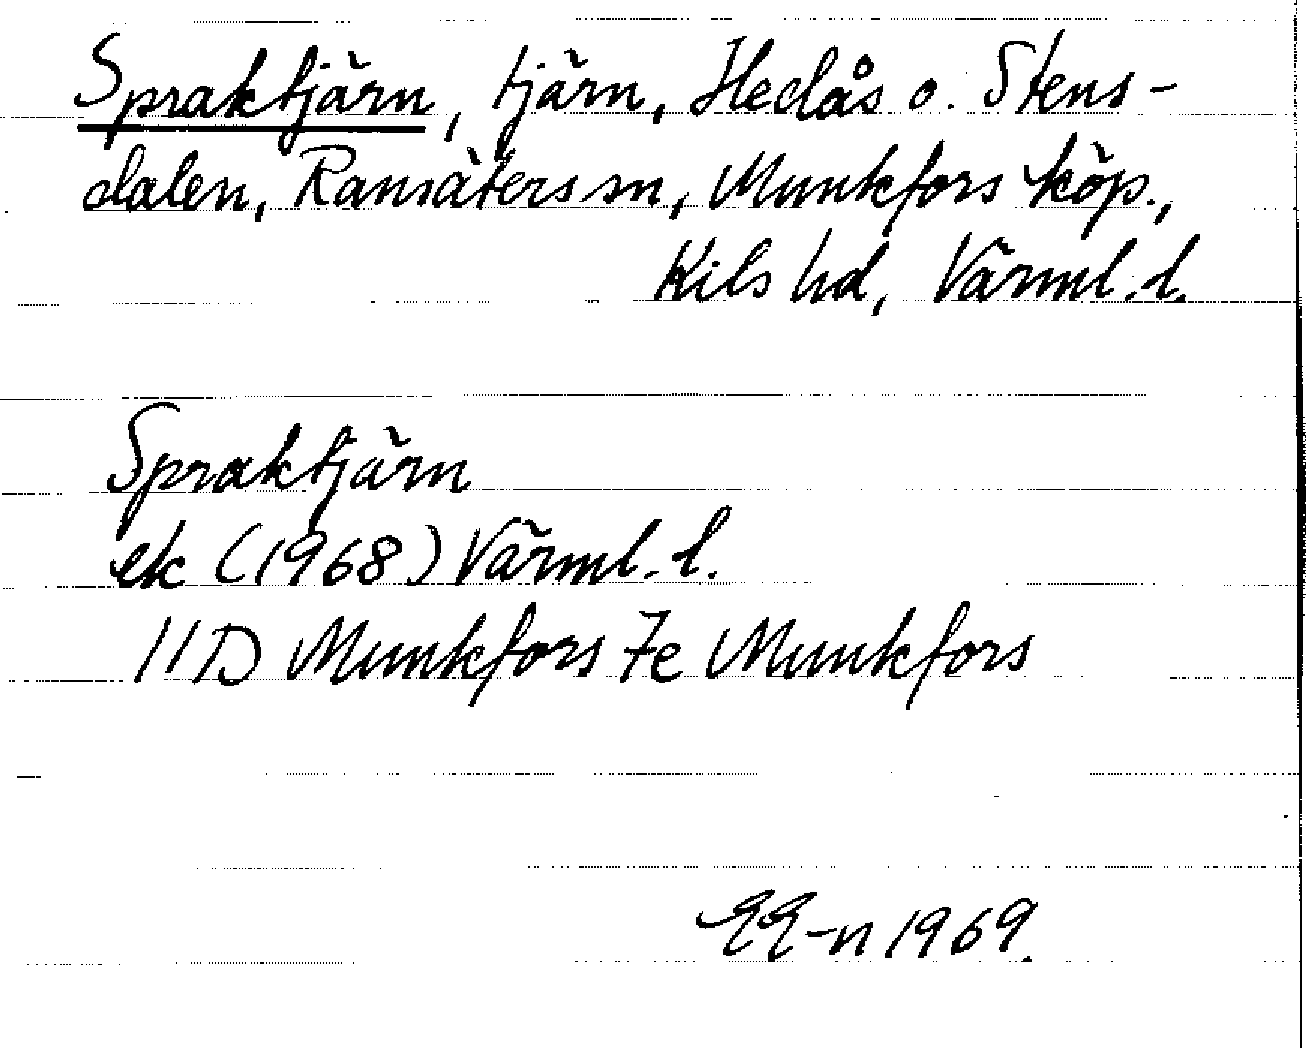 Spraktjärn, tjärn, Hedås o. Stens-
dalen, Ransäters sn, Munkfors köp.,
Kils hd, Värml. l.
Spraktjärn
ek (1968) Värml. l.
11D Munkfors 7e Munkfors
EE-n 1969.